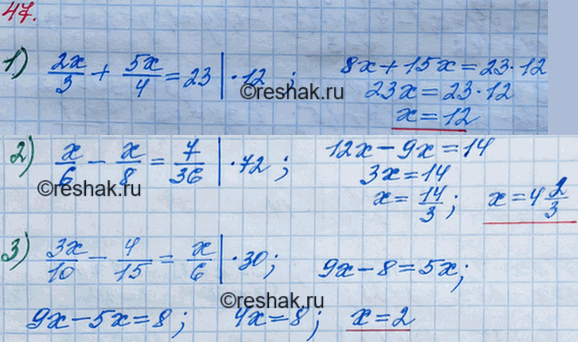 47.
1) 2x/3 + 5x/4 = 23 | ·12 ; 8x + 15x = 23·12
©reshak.ru
23x = 23·12
x = 12
©reshak.ru
2) x/6 − x/8 = 7/36 | ·72 ; 12x − 9x = 14
3x = 14
©reshak.ru
x = 14/3 ; x = 4 2/3
©reshak.ru
3) 3x/10 − 4/15 = x/6 | ·30 ; 9x − 8 = 5x ;
©reshak.ru
9x − 5x = 8 ; 4x = 8 ; x = 2